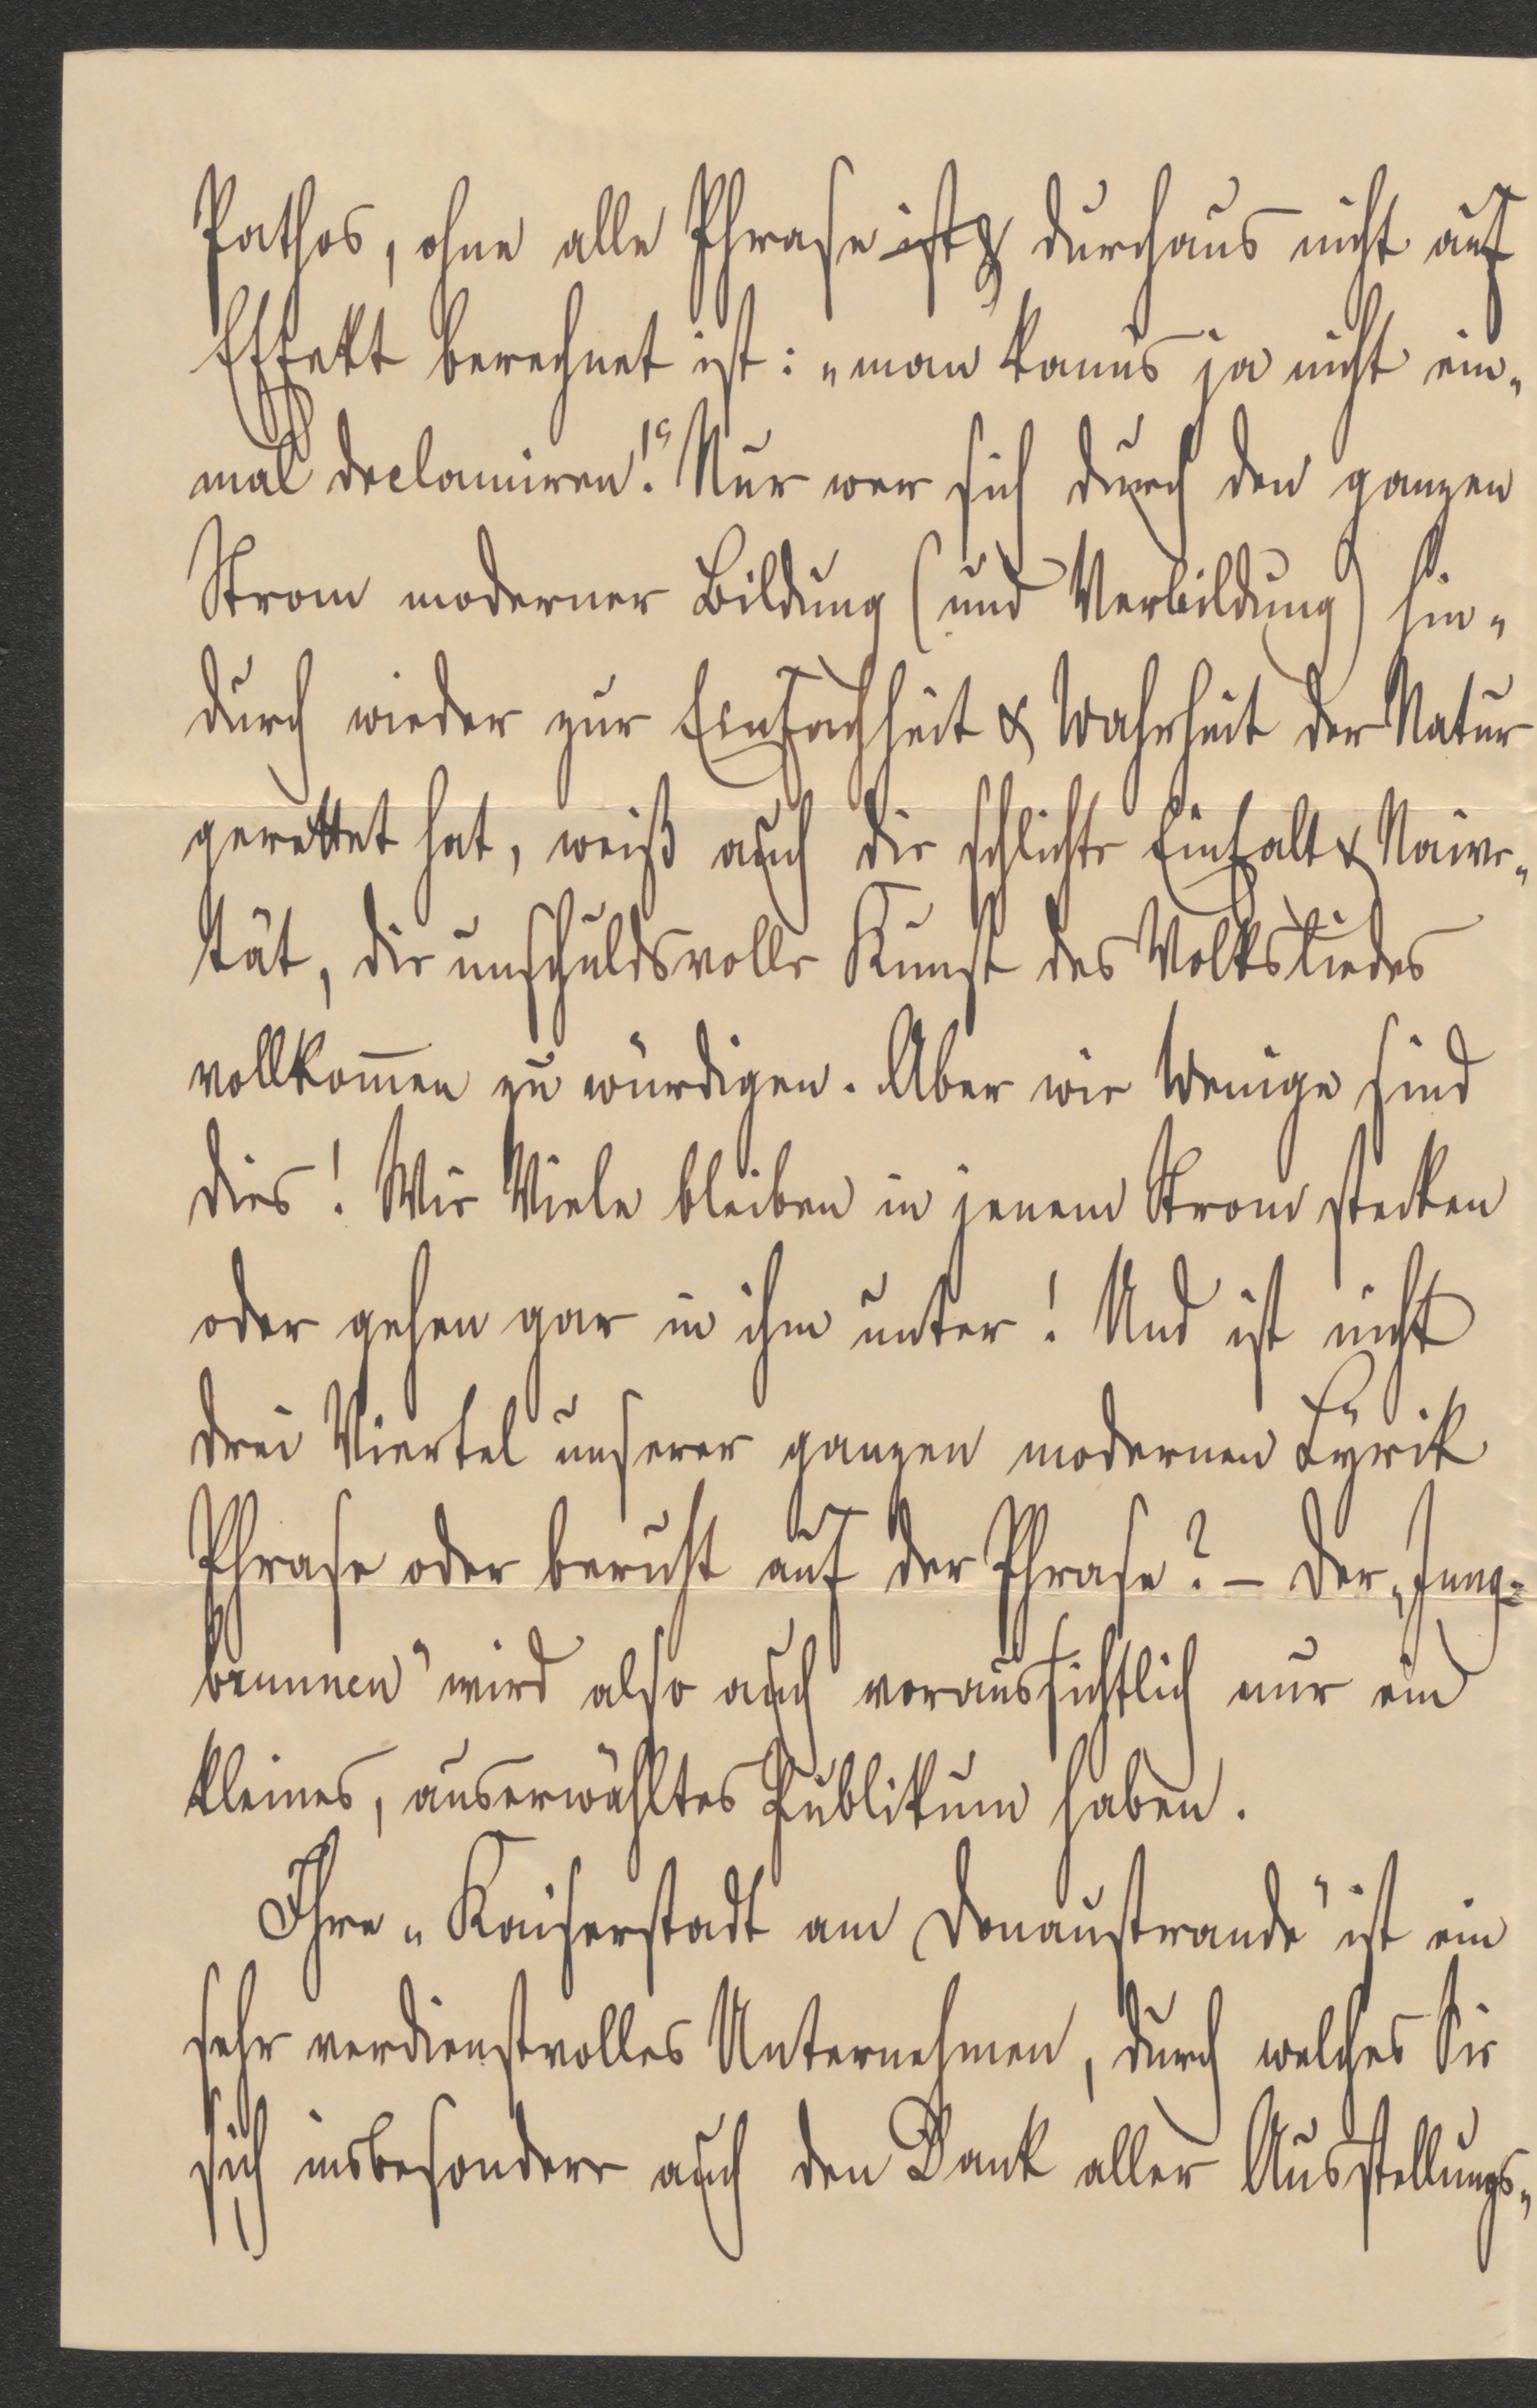 Pathos, ohne alle Phrase ist & durchaus nicht auf
Effekt berechnet ist: „man kanns ja nicht ein-
mal declamiren!“ Nur wer sich durch den ganzen
Strom moderner Bildung (und Verbildung) hin-
durch wieder zur Einfachheit & Wahrheit der Natur
gerettet hat, weiß auch die schlichte Einfalt & Naive-
tät, die unschuldsvolle Kunst des Volksliedes
vollkom̄en zu würdigen. Aber wie Wenige sind
dies! Wie Viele bleiben in jenem Strom stecken
oder gehen gar in ihm unter! Und ist nicht
drei Viertel unserer ganzen modernen Lyrik
Phrase oder beruht auf der Phrase? – Der „Jung-
brunnen“ wird also auch voraussichtlich nur ein
kleines, auserwähltes Publikum haben.
Ihre „Kaiserstadt am Donaustrande“ ist ein
sehr verdienstvolles Unternehmen, durch welches Sie
sich insbesondere auch den Dank aller Ausstellungs-